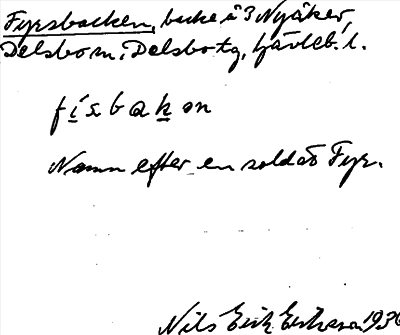 Fyrsbacken, backe å 3 Nyåker,
Delsbo sn, Delsbo tg, Gävleb. l.
físbakɘn
Namn efter en soldat Fyr.
Nils Erik Eriksson 1936